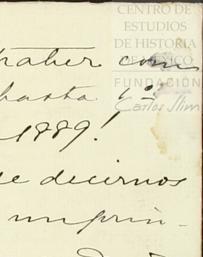 CENTRO DE
ESTUDIOS
DE HISTORIA
DE MÉXICO
FUNDACIÓN
Carlos Slim
haber como
hasta
1889!
decirnos
un prin-